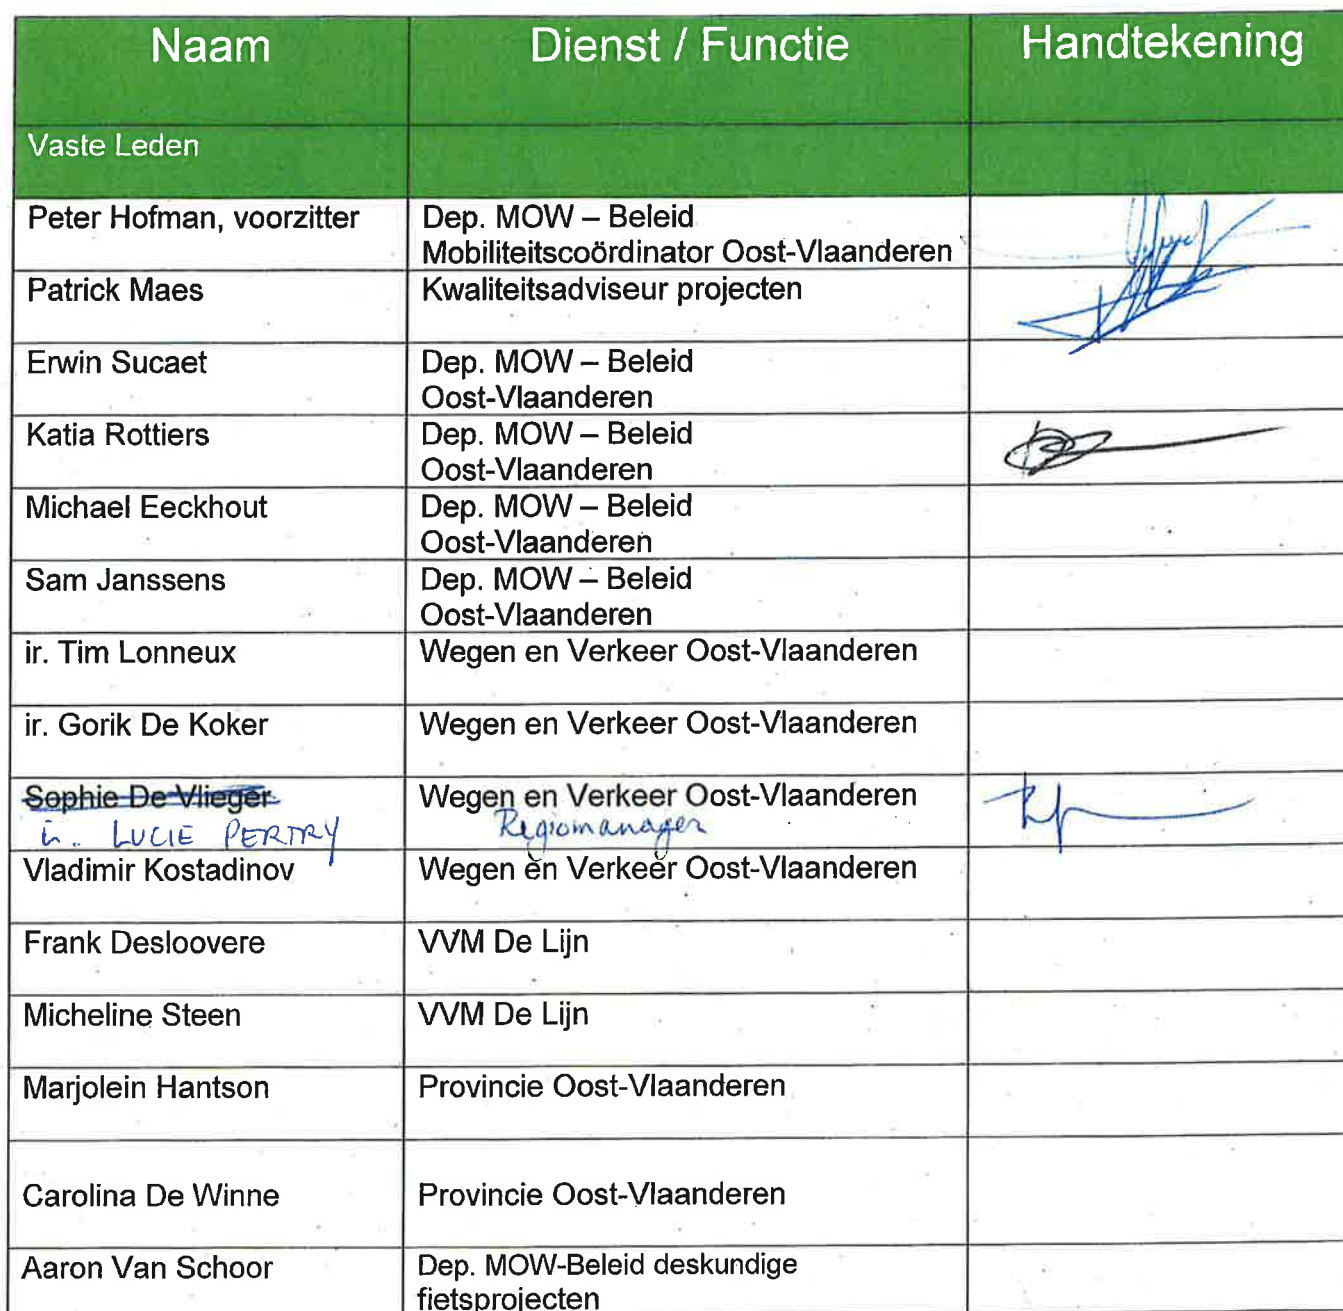 Naam Dienst / Functie Handtekening
Vaste Leden
Peter Hofman, voorzitter Dep. MOW – Beleid
Mobiliteitscoördinator Oost-Vlaanderen
Patrick Maes Kwaliteitsadviseur projecten
Erwin Sucaet Dep. MOW – Beleid
Oost-Vlaanderen
Katia Rottiers Dep. MOW – Beleid
Oost-Vlaanderen
Michael Eeckhout Dep. MOW – Beleid
Oost-Vlaanderen
Sam Janssens Dep. MOW – Beleid
Oost-Vlaanderen
ir. Tim Lonneux Wegen en Verkeer Oost-Vlaanderen
ir. Gorik De Koker Wegen en Verkeer Oost-Vlaanderen
Sophie De Vlieger Wegen en Verkeer Oost-Vlaanderen
ir. LUCIE PERTRY Regiomanager
Vladimir Kostadinov Wegen en Verkeer Oost-Vlaanderen
Frank Desloovere VVM De Lijn
Micheline Steen VVM De Lijn
Marjolein Hantson Provincie Oost-Vlaanderen
Carolina De Winne Provincie Oost-Vlaanderen
Aaron Van Schoor Dep. MOW-Beleid deskundige
fietsprojecten